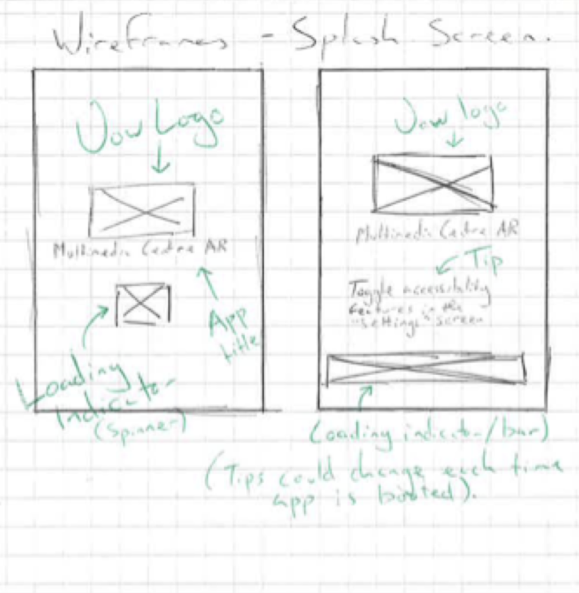 Wireframes - Splash Screen.
UoW Logo
Multimedia Centre AR
App
title
Loading
Indicator
(spinner)
UoW logo
Multimedia Centre AR
Tip
Toggle accessibility
features in the
"settings" screen
Loading indicator/bar)
(Tips could change each time
app is booted).